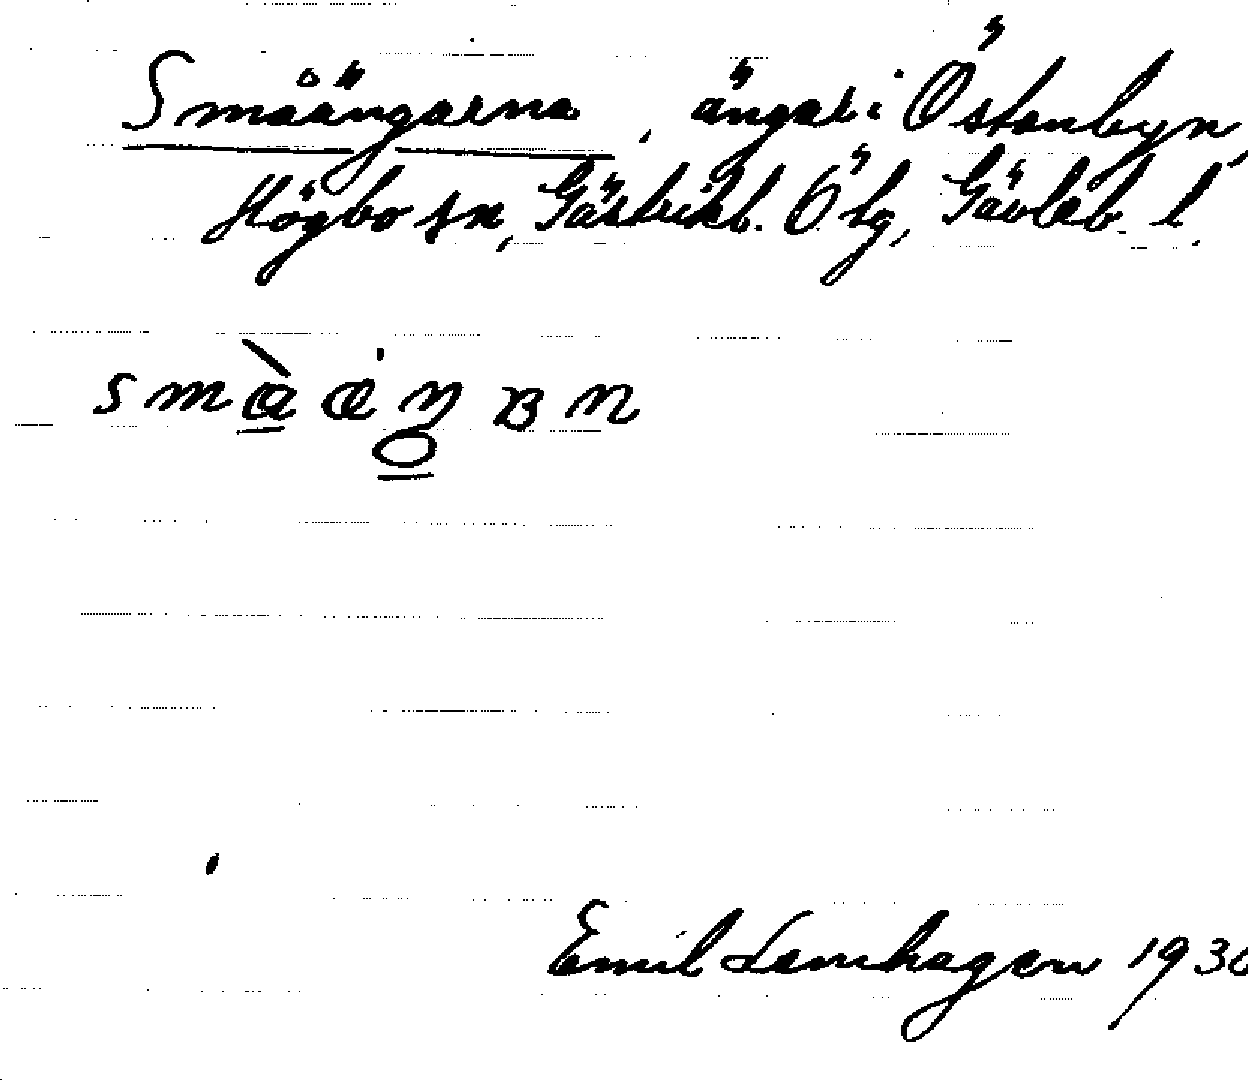 Småängarna, ängar i Östanbyn,
Högbo sn, Gästrikl. Ö. tg, Gävleb. l.
Emil Lamhagen 1936